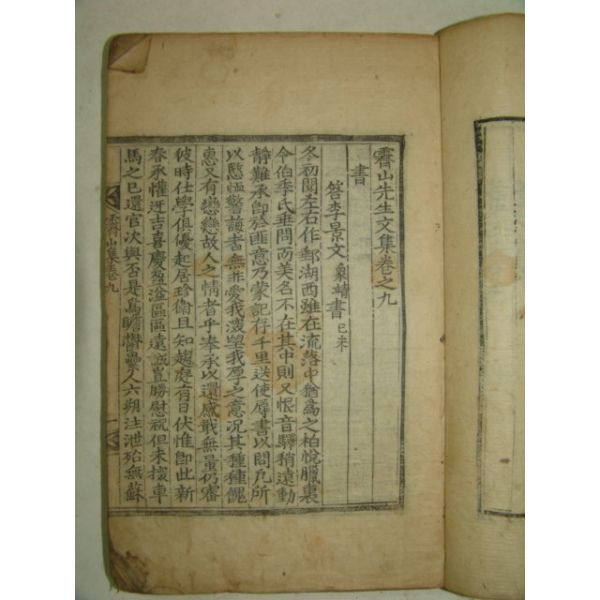 霽山先生文集卷之九
書
答李景文象靖書己未
冬初聞左右作郵湖西雖在流落中猶爲之柏悅臘裏
令伯季氏垂問而美名不在其中則又恨音驛稍遠動
靜難承卽於匪意乃蒙記存千里送使辱書以問凡所
以慰恤警誨者無非愛我濃望我厚之意况其種種儺
惠又有戀戀故人之情者乎奉承以還感戢無量仍審
彼時仕學俱優起居珍衛且知趨庭有日伏惟卽此新
春承懽迓吉喜慶盈溢區區遠誠豈勝慰祝但未諼車
馬之已還官次與否是爲瞻欝纍人六朔注泄殆無蘇
霽山集卷九